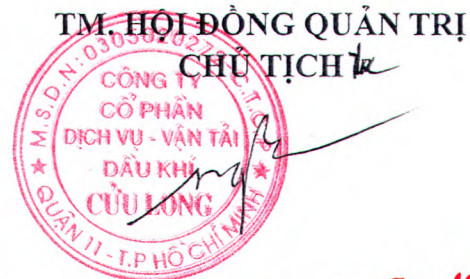 TM. HỘI ĐỒNG QUẢN TRỊ
CHỦ TỊCH
CÔNG TY
CỔ PHẦN
DỊCH VỤ - VẬN TẢI
DẦU KHÍ
CỬU LONG
QUẬN 11 - T.P HỒ CHÍ MINH